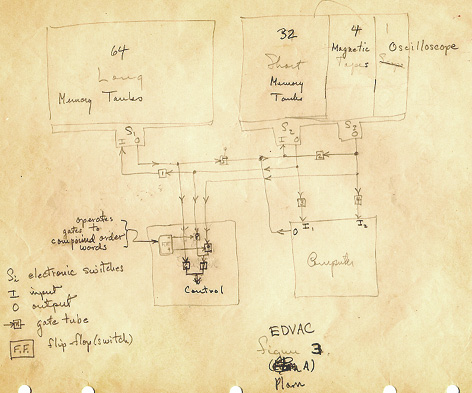 64
Long
Memory Tanks
32
Short
Memory
Tanks
4
Magnetic
Tapes
1
Oscilloscope
S1
I
O
S2
I O
S3
O
1
operates
gates to
compound order
words
F.F.
Control
O
I1
I2
Computer
Si electronic switches
I input
O output
gate tube
F.F. flip-flop (switch)
EDVAC
Figure 3.
A)
Plan